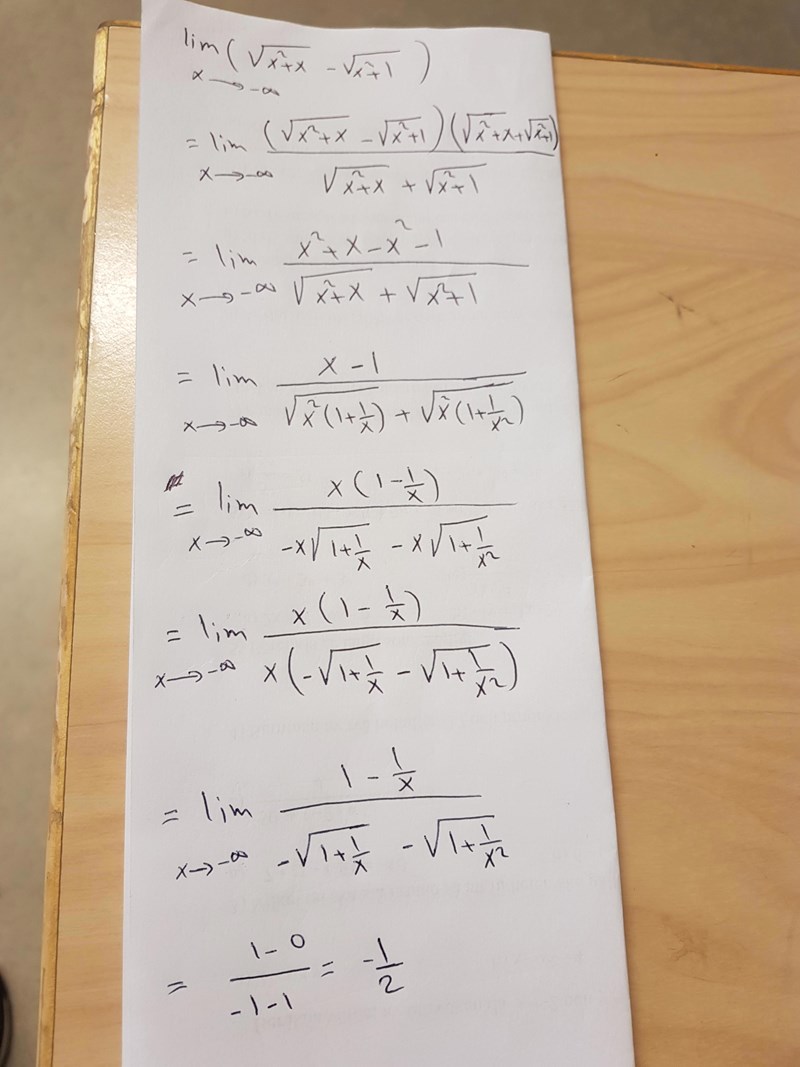 lim (√(x²+x) - √(x²+1))
x→-∞
= lim (√(x²+x) - √(x²+1))(√(x²+x) + √(x²+1))
x→-∞ √(x²+x) + √(x²+1)
= lim x²+x-x²-1
x→-∞ √(x²+x) + √(x²+1)
= lim x-1
x→-∞ √(x²(1+1/x)) + √(x²(1+1/x²))
= lim x(1-1/x)
x→-∞ -x√(1+1/x) - x√(1+1/x²)
= lim x(1-1/x)
x→-∞ x(-√(1+1/x) - √(1+1/x²))
= lim 1-1/x
x→-∞ -√(1+1/x) - √(1+1/x²)
= (1-0)/(-1-1) = -1/2